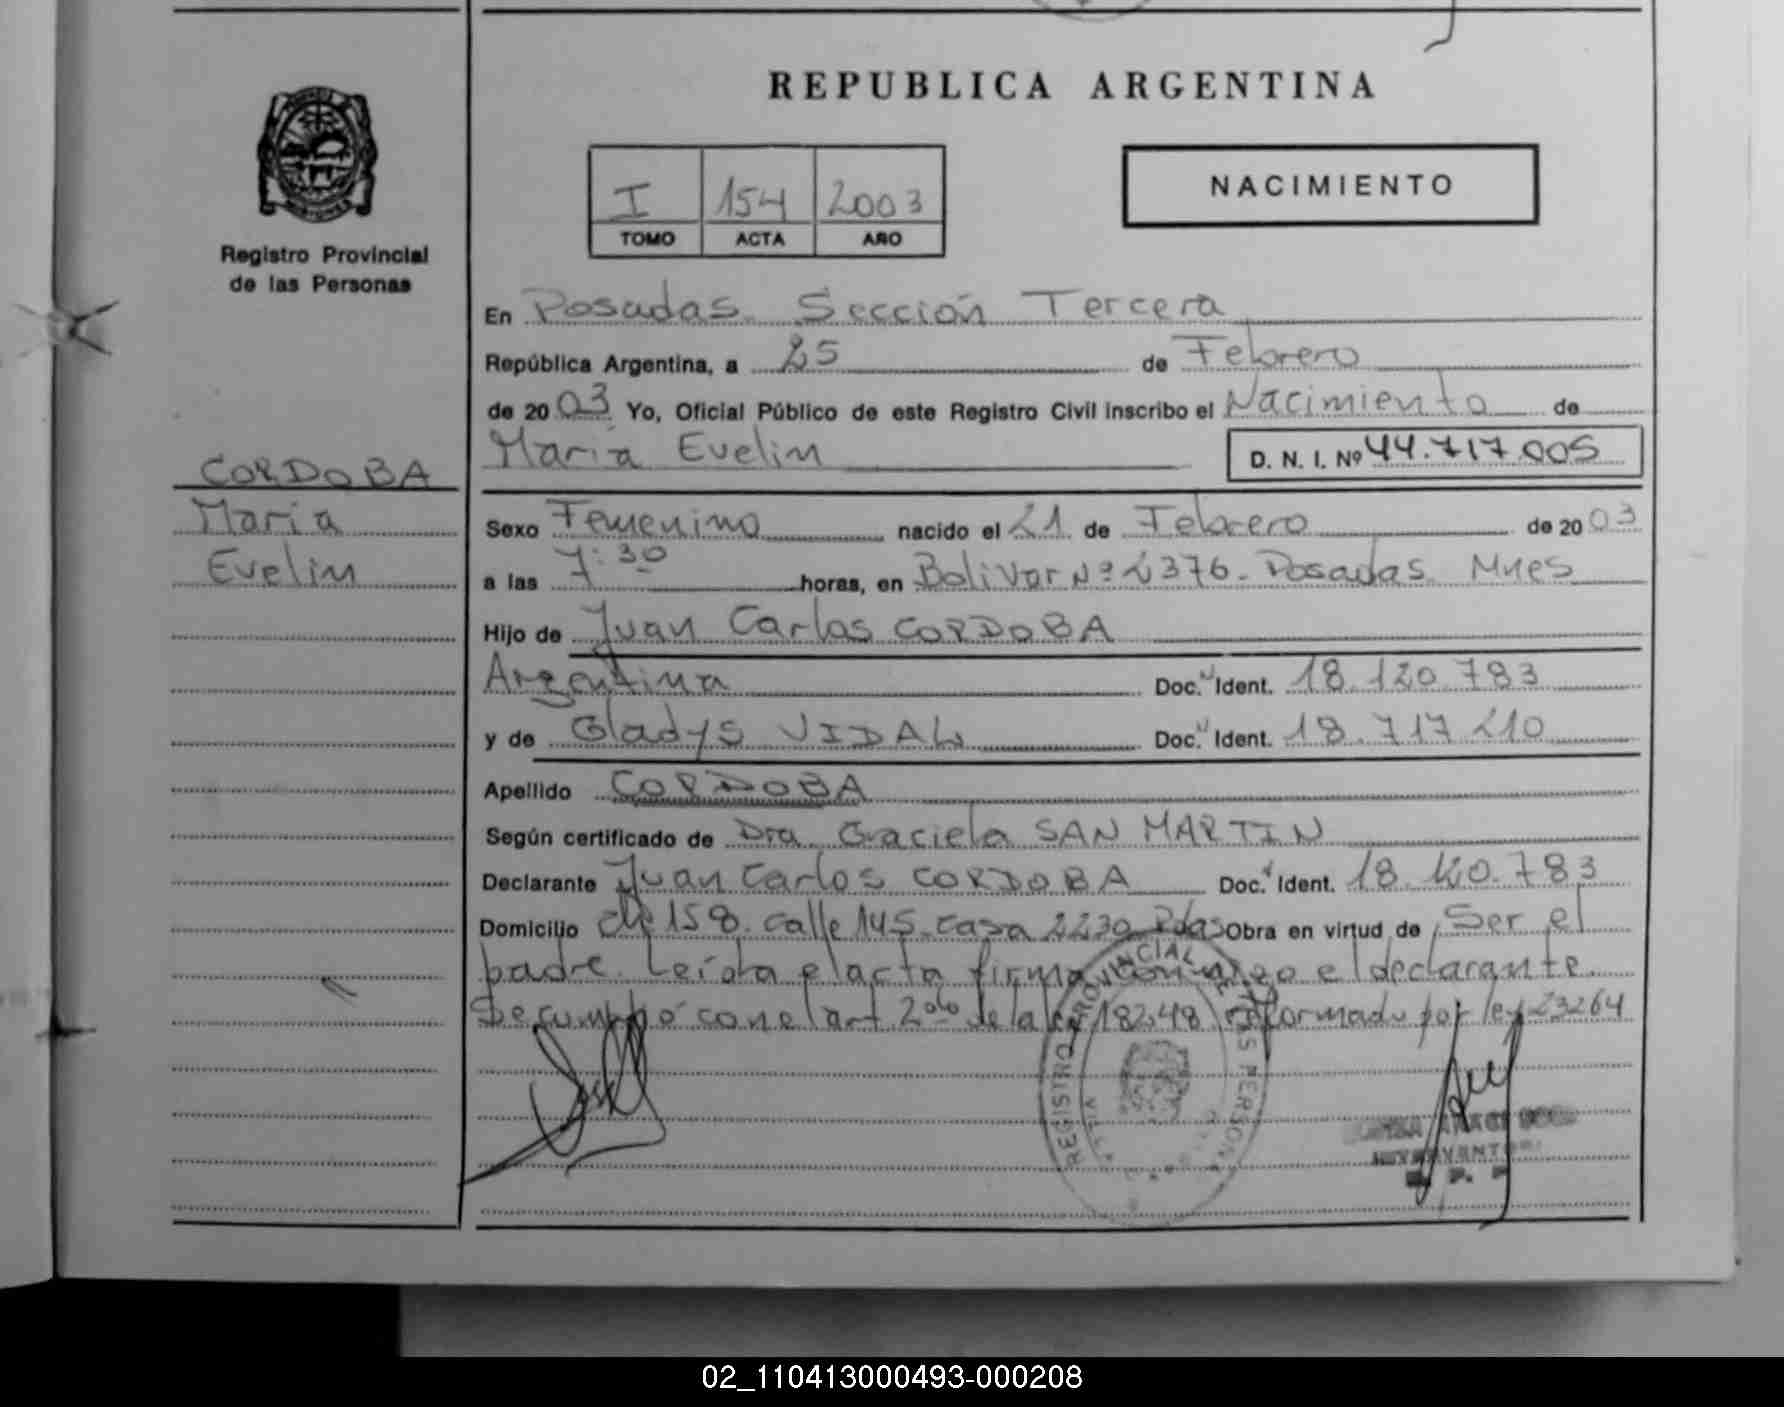 REPUBLICA ARGENTINA
I 154 2003
TOMO ACTA AÑO
NACIMIENTO
Registro Provincial
de las Personas
CORDOBA
María
Evelin
En Posadas Sección Tercera
República Argentina, a 25 de Febrero
de 2003 Yo, Oficial Público de este Registro Civil inscribo el Nacimiento de
María Evelin D. N. I. Nº 44.717.005
Sexo Femenino nacido el 21 de Febrero de 2003
a las 7:30 horas, en Bolivar Nº 2376. Posadas Mnes
Hijo de Juan Carlos CORDOBA
Argentina Doc. Ident. 18.120.783
y de Gladys VIDAL Doc. Ident. 18.717.210
Apellido CORDOBA
Según certificado de Dra. Graciela SAN MARTIN
Declarante Juan Carlos CORDOBA Doc. Ident. 18.120.783
Domicilio ch 158. calle 145. casa 2230 Pdas Obra en virtud de Ser el
padre. Leída el acta firma conmigo el declarante.
Se cumplió con el art 2do de la ley 18248 reformado por ley 23264
REGISTRO PROVINCIAL DE LAS PERSONAS
02_110413000493-000208